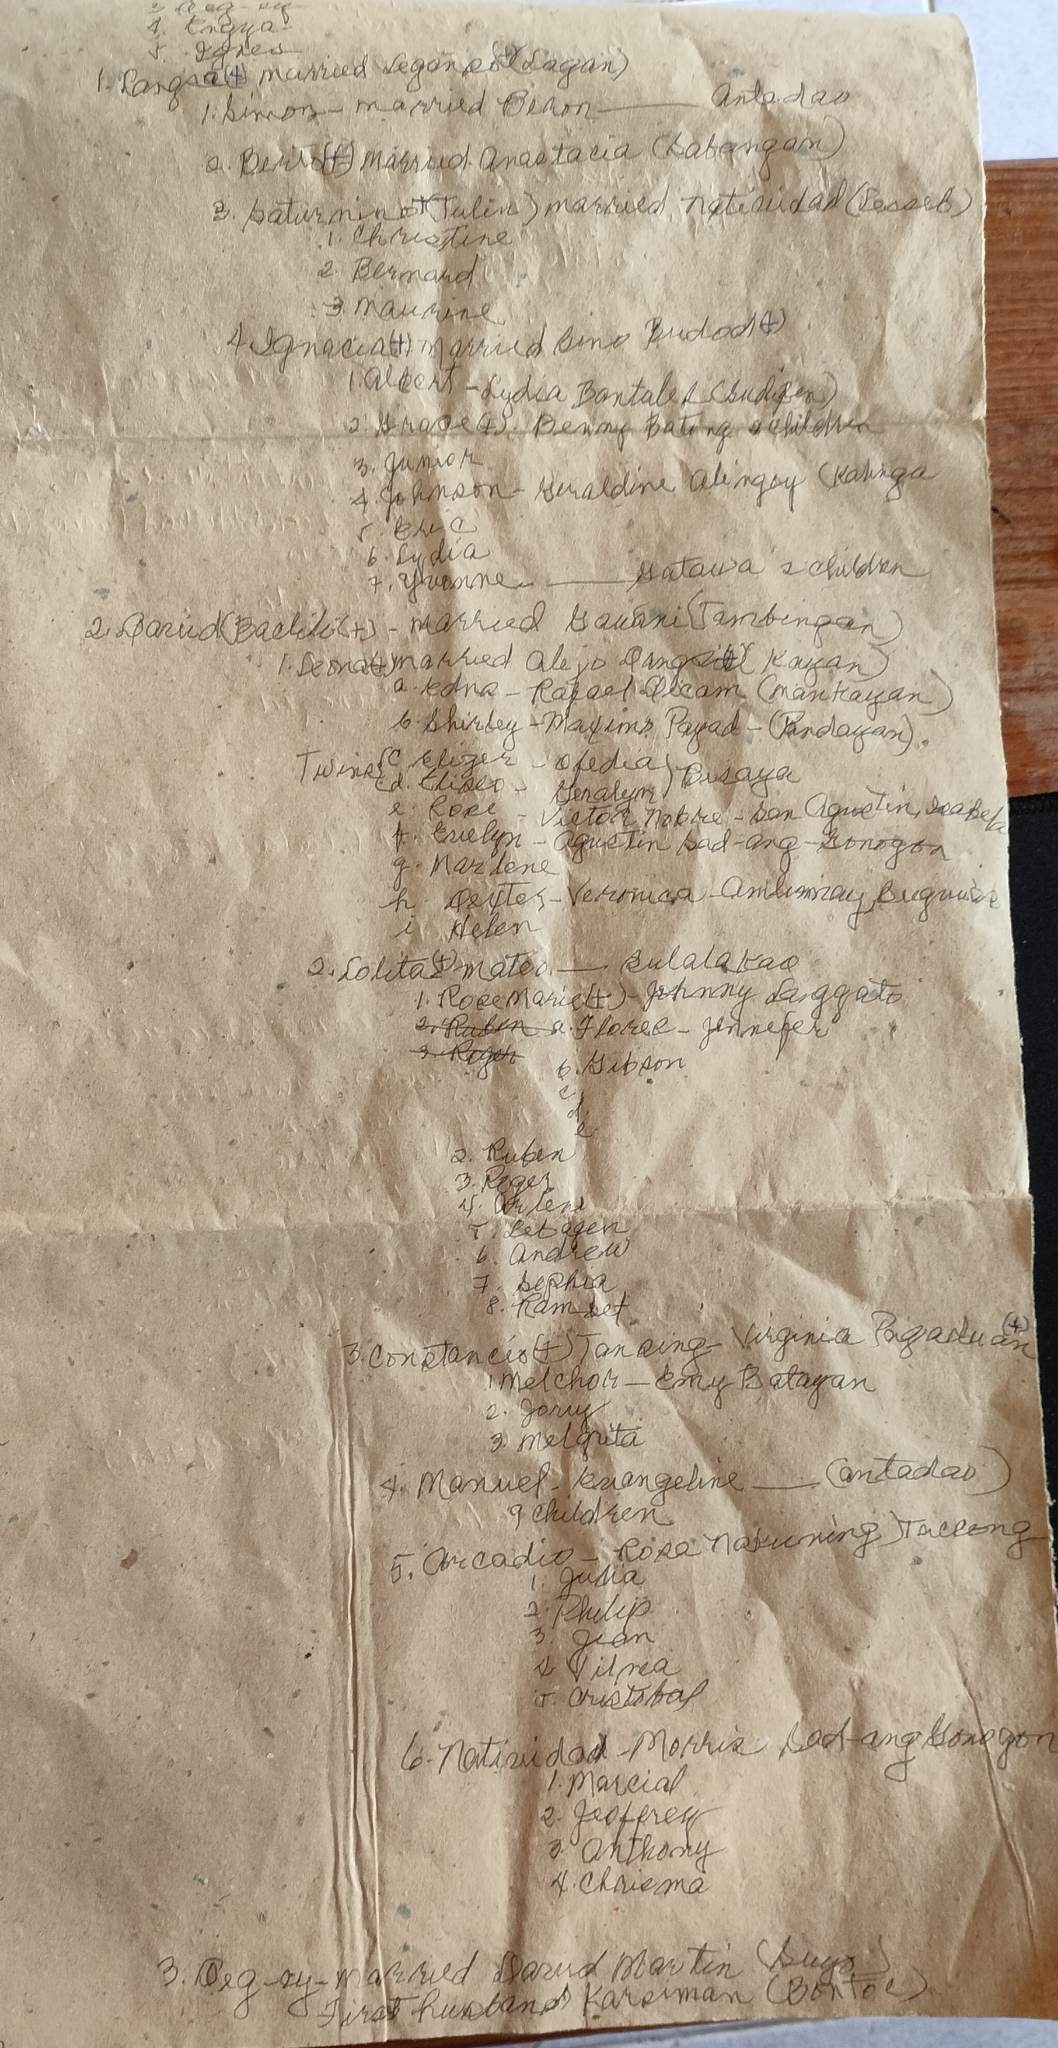 4. Engya-
5. Agnes
1. Langsa(+) married Leganeo(+)(Lagan)
1. Simon - married Benon ——— Antadao
2. Beris(+) married Anastacia (Labangan)
3. Saturnino+(Tulin) married Natividad (Besaeb)
1. Christine
2. Bernard
3. Maurine
4. Ignacia(+) married Gino Budod(+)
1. Albert - Lydia Bantales (Sudipen)
2. Grace(+). Benny Bating 2 children
3. Junior
4. Johnson - Geraldine Alingoy (Kalinga
5. Eric
6. Lydia
7. Yvonne ——— Gatawa 2 children
2. David (Bachili(+) - married Gauani (Tambingan)
1. Leona(+) married Alejo Dangsil(+) (Kayan)
a. Edna - Rafael Olcam (Mankayan)
b. Shirley - Maximo Payad - (Pandayan).
Twins (c Eliezer - Ofedia) Bisaya
(d. Eliseo - Genalyn)
e Rose - Victor Nobre - San Agustin, Isabela
f. Evelyn - Agustin Sad-ang - Gonogon
g. Marlene
h. Dexter - Veronica - Amlimay, Buguias
i Helen
2. Lolita(+) - Mateo — Gulalakao
1. Rose Marie(+) - Johnny Langgato
2. Ruben a. Flores - Jennefer
3. Roger
b. Gibson
c
d
e
2. Ruben
3. Roger
4. Arlene
5. Letagen
6. Andrew
7. Sephia
8. Ramset
3. Constancio(+) Tanzing - Virginia Pagaduan(+)
1 Melchor — Emy Batayan
2. Jorry
3. Melquita
4. Manuel - Evangeline —— (Antadao)
9 children
5. Arcadio - Rose Nakuning) Taccong
1. Julia
2. Philip
3. Jean
4 Vilma
5. Cristobal
6. Natividad - Morris Sad-ang Gonogon
1. Marcial
2. Jeoffrey
3 Anthony
4. Chrisma
3. Oeg-ey - married David Martin (Suyo)
First husband Karsiman (Bontoc)